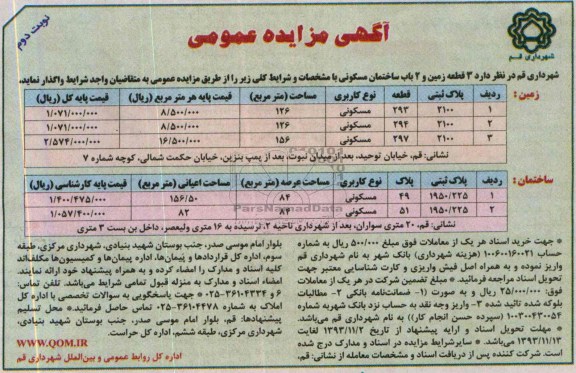 نوبت دوم
آگهی مزایده عمومی
شهرداری قم
شهرداری قم در نظر دارد ۳ قطعه زمین و ۲ باب ساختمان مسکونی با مشخصات و شرایط کلی زیر را از طریق مزایده عمومی به متقاضیان واجد شرایط واگذار نماید.
زمین:
ردیف پلاک ثبتی قطعه نوع کاربری مساحت (متر مربع) قیمت پایه هر متر مربع (ریال) قیمت پایه کل (ریال)
۱ ۲۱۰۰ ۲۹۳ مسکونی ۱۲۶ ۸/۵۰۰/۰۰۰ ۱/۰۷۱/۰۰۰/۰۰۰
۲ ۲۱۰۰ ۲۹۴ مسکونی ۱۲۶ ۸/۵۰۰/۰۰۰ ۱/۰۷۱/۰۰۰/۰۰۰
۳ ۲۱۰۰ ۲۹۷ مسکونی ۱۵۶ ۱۶/۵۰۰/۰۰۰ ۲/۵۷۴/۰۰۰/۰۰۰
نشانی: قم، خیابان توحید، بعد از میدان نبوت، بعد از پمپ بنزین، خیابان حکمت شمالی، کوچه شماره ۷
ساختمان:
ردیف پلاک ثبتی پلاک نوع کاربری مساحت عرصه (متر مربع) مساحت اعیانی (متر مربع) قیمت پایه کارشناسی (ریال)
۱ ۱۹۵۰/۲۲۵ ۴۹ مسکونی ۸۴ ۱۵۶/۵۰ ۱/۴۰۰/۴۷۵/۰۰۰
۲ ۱۹۵۰/۲۲۵ ۵۱ مسکونی ۸۴ ۸۲ ۱/۰۵۷/۴۰۰/۰۰۰
ParsNamadData
نشانی: قم، ۲۰ متری سواران، بعد از شهرداری ناحیه ۲، نرسیده به ۱۶ متری ولیعصر، داخل بن بست ۳ متری
* جهت خرید اسناد هر یک از معاملات فوق مبلغ ۵۰۰/۰۰۰ ریال به شماره
حساب ۱۰۰۶۰۰۱۶۰۰۲۱ (هزینه شهرداری) بانک شهر به نام شهرداری قم
واریز نموده و به همراه اصل فیش واریزی و کارت شناسایی معتبر جهت
تحویل اسناد مراجعه فرمائید. * مبلغ تضمین شرکت در هر یک از معاملات
فوق: ۲۵/۰۰۰/۰۰۰ ریال و به صورت (۱- ضمانتنامه بانکی ۲- مطالبات
بلوکه شده تائید شده ۳- واریز وجه نقد به حساب نزد بانک شهر به شماره
۱۰۰۳۰۰۴۳۰۰۵۴ (سپرده حسن انجام کار)) به نام شهرداری قم می‌باشد.
* مهلت تحویل اسناد و ارایه پیشنهاد از تاریخ ۱۳۹۳/۱۱/۲ لغایت
۱۳۹۳/۱۱/۱۳ می‌باشد. * سایر شرایط مزایده در اسناد و مدارک درج شده
است. شرکت کننده پس از دریافت اسناد و مشخصات معامله از نشانی: قم،
بلوار امام موسی صدر، جنب بوستان شهید بنیادی، شهرداری مرکزی، طبقه
سوم، اداره کل قراردادها و پیمان‌ها، اداره پیمان‌ها و کمیسیون‌ها مکلف‌اند
کلیه اسناد و مدارک را امضاء کرده و به همراه پیشنهاد خود ارائه نمایند.
امضاء اسناد و مدارک به منزله قبول تمامی شرایط می‌باشد. تلفن تماس:
۶ و ۳۶۱۰۴۴۳۴-۰۲۵ * جهت پاسخگویی به سوالات تخصصی با اداره کل
املاک به شماره ۳۶۱۰۴۴۷۸-۰۲۵ تماس حاصل فرمائید. * محل تسلیم
پیشنهادها: قم، بلوار امام موسی صدر، جنب بوستان شهید بنیادی،
شهرداری مرکزی، طبقه ششم، اداره کل حراست.
WWW.QOM.IR
اداره کل روابط عمومی و بین‌الملل شهرداری قم